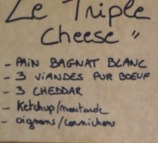 Le Triple
Cheese"
- PAIN BAGNAT BLANC
- 3 VIANDES PUR BOEUF
- 3 CHEDDAR
- Ketchup/moutarde
- oignons/cornichons